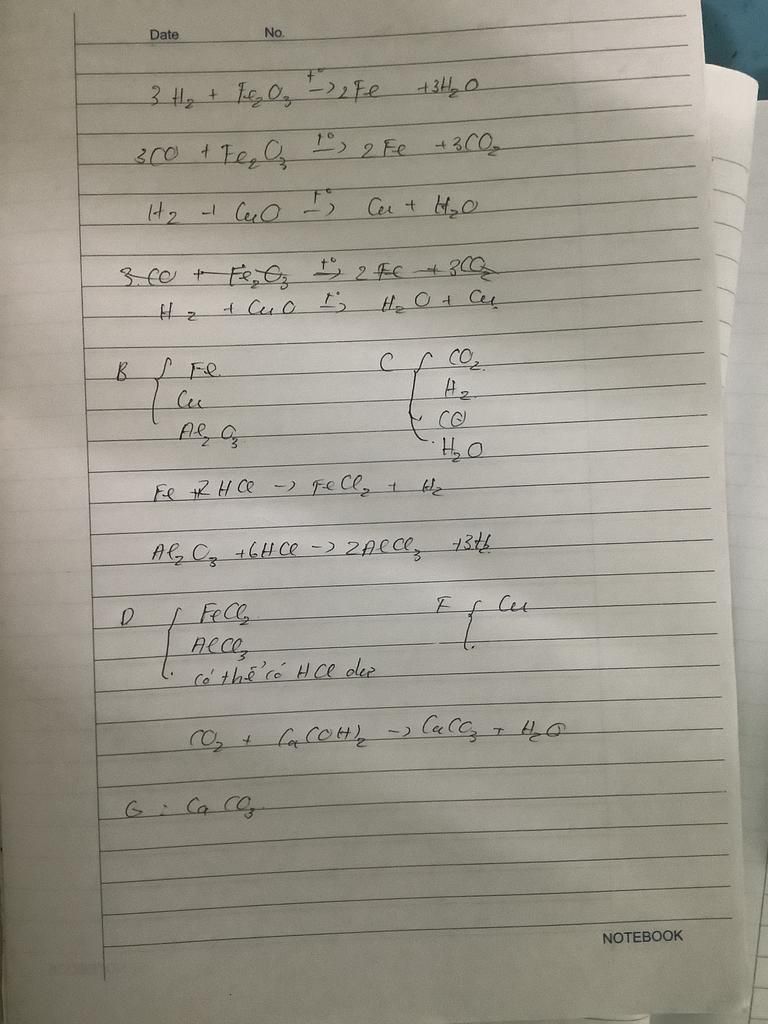 Date No.
3 H₂ + Fe₂O₃ t° → 2 Fe + 3H₂O
3CO + Fe₂O₃ t° → 2 Fe + 3CO₂
H₂ + CuO t° → Cu + H₂O
3 CO + Fe₂O₃ t° → 2 Fe + 3CO₂
H₂ + CuO t° → H₂O + Cu
B { Fe C { CO₂
Cu H₂
Al₂O₃ CO
H₂O
Fe + 2 HCl → FeCl₂ + H₂
Al₂O₃ + 6HCl → 2AlCl₃ + 3H₂
D { FeCl₂ F { Cu
AlCl₃
có thể có HCl dư
CO₂ + Ca(OH)₂ → CaCO₃ + H₂O
G : CaCO₃
NOTEBOOK